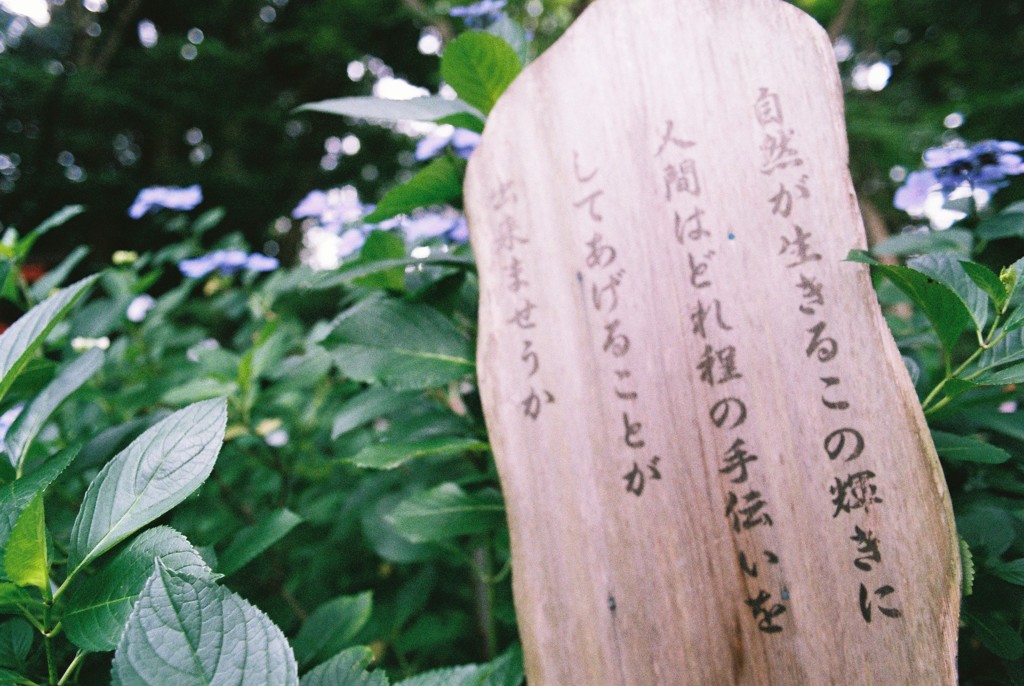 自然が生きるこの輝きに
人間はどれ程の手伝いを
してあげることが
出来ませうか